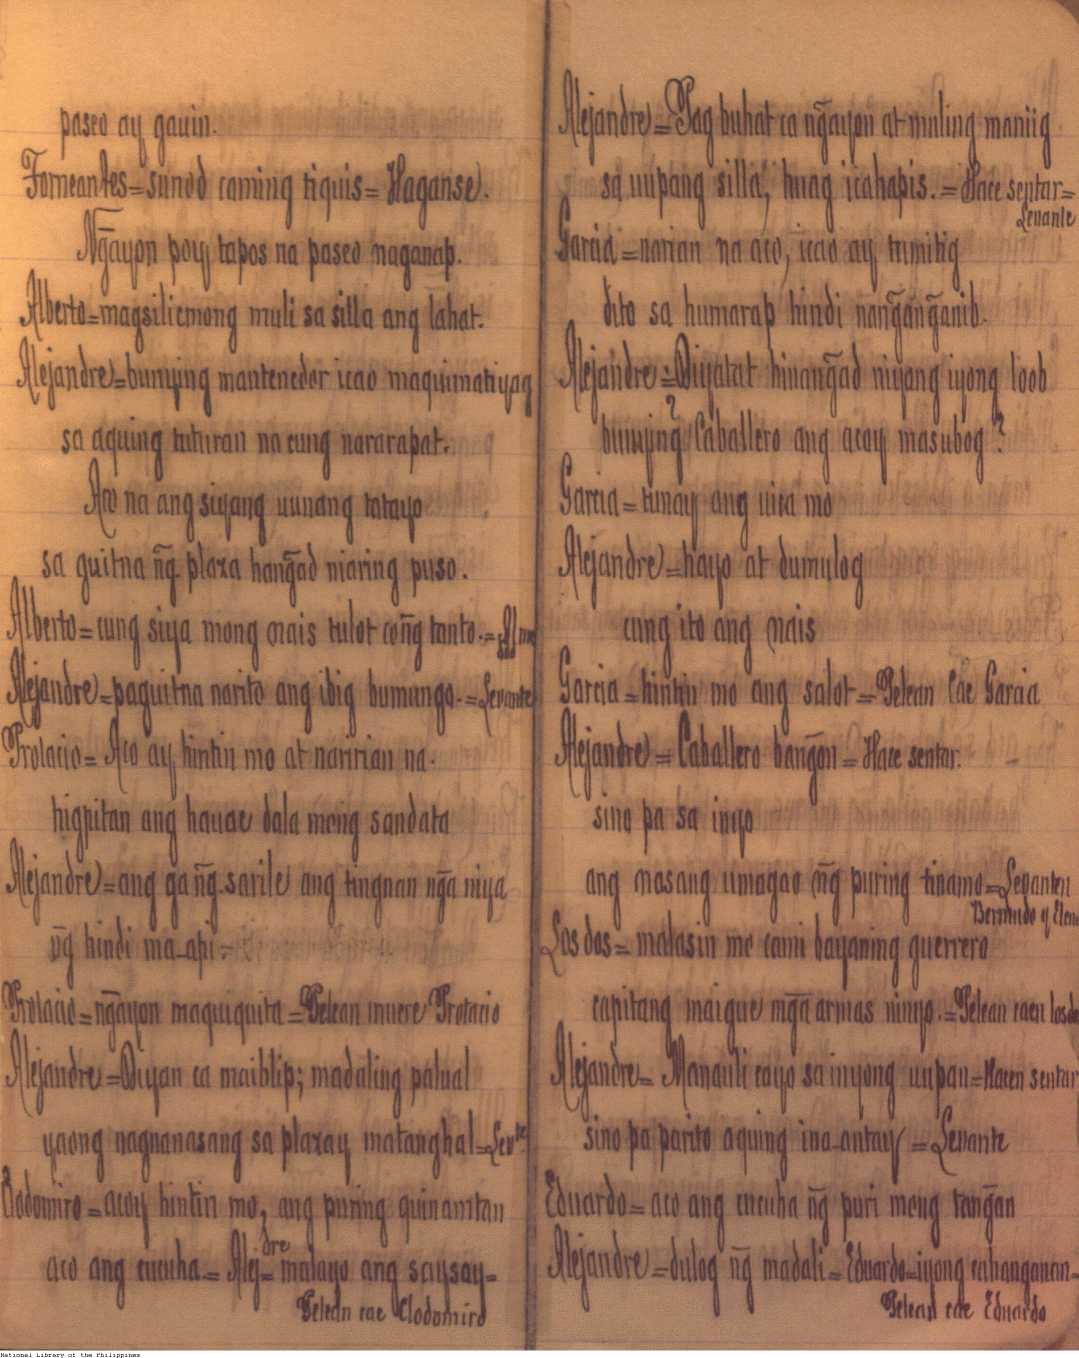 paseo ay gauin.
Torneantes = sunod caming tiquis = Haganse.
Ng̃ayon poy tapos na paseo naganap.
Alberto = magsiliemong muli sa silla ang lahat.
Alejandre = bunying mantenedor icao maquimatiyag
sa aquing tuturan na cung nararapat.
Aco na ang siyang uunang tatayo
sa guitna ng̃ plaza hang̃ad niaring puso.
Alberto = cung siya mong nais tulot cong̃ tanto. =
Alejandre = paguitna narito ang ibig bumungo. = Levante
Protacio = Aco ay hintin mo at naririan na.
higpitan ang hauac dala mong sandata
Alejandre = ang gang̃ sarile ang tingnan ng̃a niya
ng̃ hindi ma-api =
Protacio = ng̃ayon maquiquita = Pelean muere Protacio
Alejandre = Diyan ca maiblip; madaling palual
yaong nagnanasang sa plazay matanghal = Levte
Clodomiro = acoy hintin mo, ang puring quinamtan
aco ang cucuha = Alejdre = malayo ang saysay =
Pelean cae Clodomiro
Alejandre = Pag buhat ca ng̃ayon at muling maniig
sa uupang silla, huag icahapis. = Hace sentar =
Levante
Garcia = narian na aco, icao ay tumitig
dito sa humarap hindi nang̃ang̃anib.
Alejandre = Diyatat hinang̃ad niyang iyong loob
bunying Caballero ang acay masubog?
Garcia = tunay ang uica mo
Alejandre = hayo at dumulog
cung ito ang nais
Garcia = hintin mo ang salot = Pelean Cae Garcia
Alejandre = Caballero bang̃on = Hace sentar.
sino pa sa inyo
ang nasang umagao ng̃ puring tinamo = Levanten
Bermudo y Elena
Los dos = malasin mo cami bayaning guerrero
capitang maigue mg̃a armas ninyo. = Pelean caen los dos
Alejandre = Manauli cayo sa inyong uupan = Hacen sentar
sino pa parito aquing ina-antay = Levante
Eduardo = aco ang cucuha ng̃ puri mong tang̃an
Alejandre = dulog ng̃ madali = Eduardo = iyong cahanganan =
Pelean cae Eduardo
National Library of the Philippines